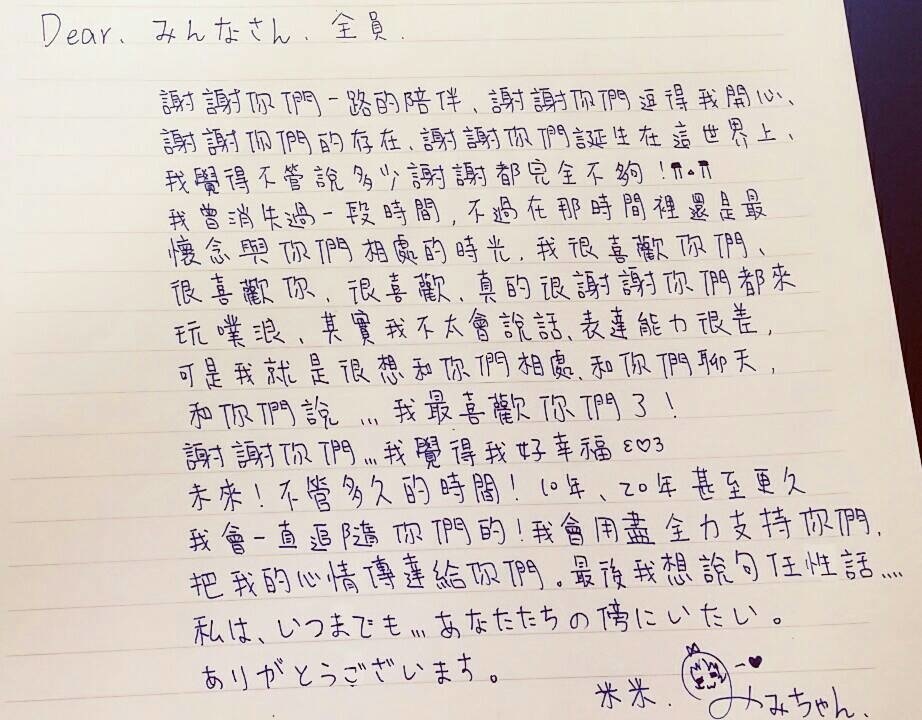 Dear、みんなさん、全員.
謝謝你們一路的陪伴、謝謝你們逗得我開心、
謝謝你們的存在、謝謝你們誕生在這世界上、
我覺得不管說多少謝謝都完全不夠！π•π
我曾消失過一段時間，不過在那時間裡還是最
懷念與你們相處的時光，我很喜歡你們、
很喜歡你、很喜歡、真的很謝謝你們都來
玩噗浪、其實我不太會說話、表達能力很差，
可是我就是很想和你們相處、和你們聊天，
和你們說...我最喜歡你們了！
謝謝你們...我覺得我好幸福ε♡3
未來！不管多久的時間！10年、20年甚至更久
我會一直追隨你們的！我會用盡全力支持你們，
把我的心情傳達給你們。最後我想說句任性話....
私は、いつまでも...あなたたちの傍にいたい。
ありがとうございます。
米米. みみちゃん.